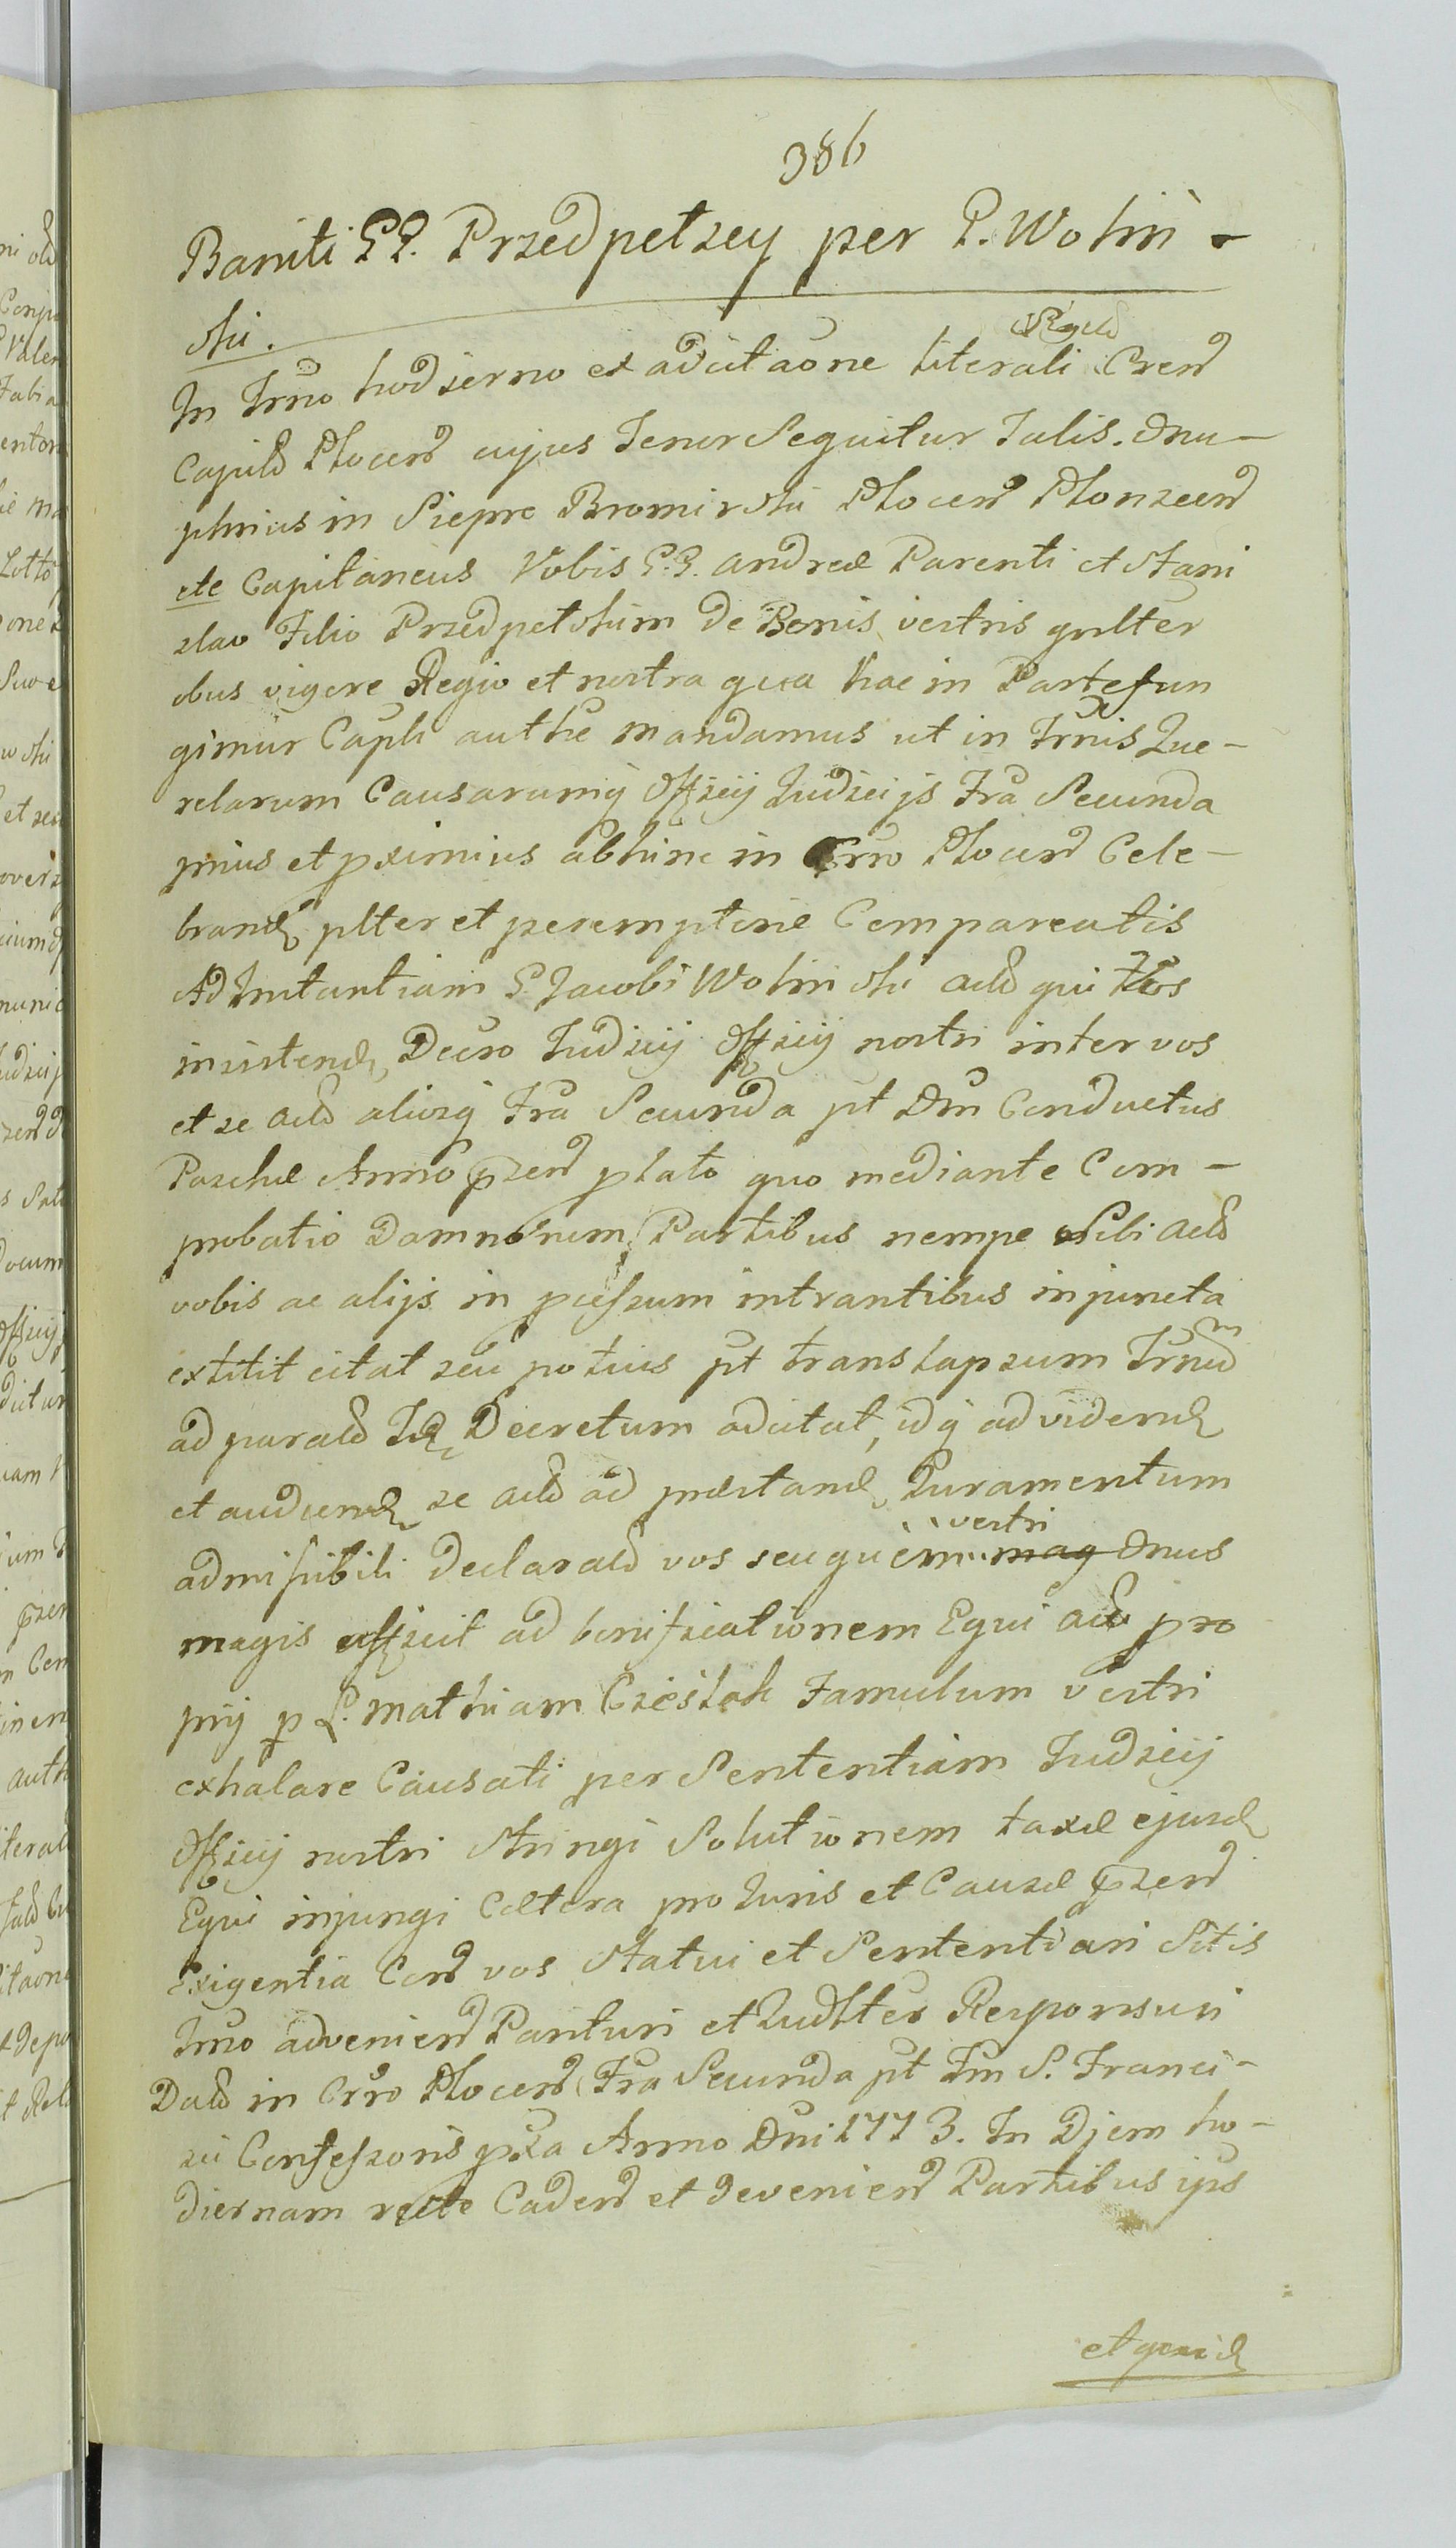 386
Baniti GG. Przedpełzcy per G. Woliń-
ski.
In Trno hodierno ex adcitaone literali Sigild Cren
Capitld Plocen cujus Tenor Sequitur Talis. Onu-
phrius in Siepre Bromirski Plocen Plonscen
etc Capitaneus Vobis G.G. Andreæ Parenti et Stani
slao Filio Przedpełskim de Bonis vestris gnlter
obus vigore Regio et nostra qua hac in Parte fun
gimur Capli authe mandamus ut in Trnis Que-
relarum Causarumq Officij Judicijs Fra Secunda
prius et pximius abhinc in Crro Plocen Cele-
brand plter et peremptorie Compareatis
Ad Instantiam G. Jacobi Wolinski actd qui Vos
insistend Decro Judicij Officij nostri inter vos
et se actd aliosq Fra Secunda pt Dm Conductus
Paschæ Anno pzen plato quo mediante Com-
probatio Damnorum Partibus nempe Sibi actd
vobis ac alijs in pcessum intrantibus injuncta
extitit citat seu potius pt translapsum Trnum
ad parald Id Decretum adcitat, idq ad videnд
et audiend se actd ad præstand Juramentum
admissibili Declarald vos seu quem vestri mag Onus
magis afficit ad bonificationem Equi actd pro
prij p L. Mathiam Cieślak Famulum vestri
exhalare Causati per Sententiam Judicij
Officij nostri Stringi Solutionem taxæ ejusd
Equi injungi Cætera pro Juris et Causæ pzen
Exigentia Cern vos Statui et Sententiari Sitis
Trno advenien Parituri et Judlter Responsuri
Datd in Crro Plocen Fra Secunda pt Fm S. Franci-
sci Confessoris pxa Anno Dni 1773. In Diem ho-
diernam recte Caden et devenien Partibus ips
et